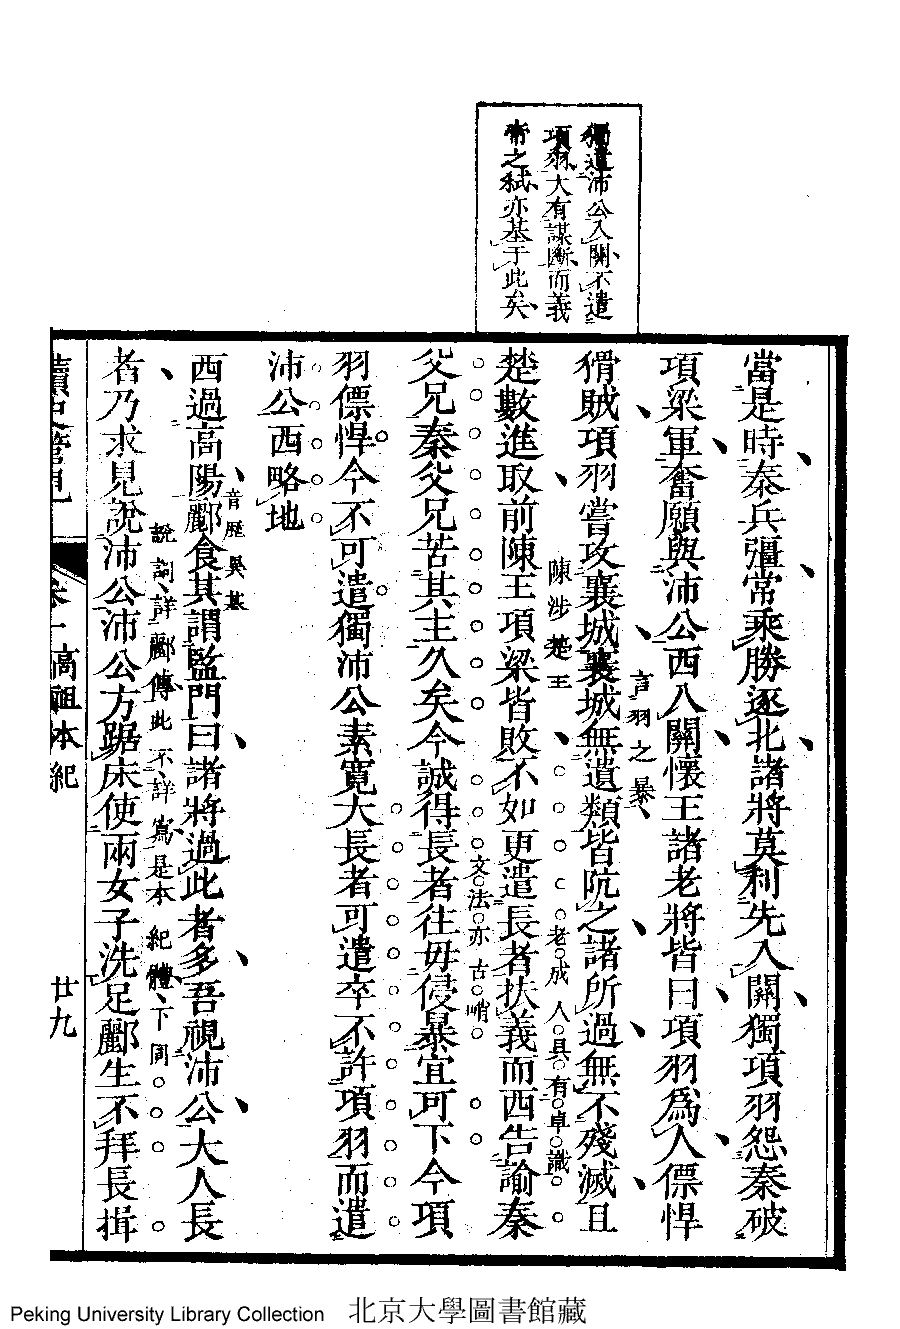 獨遣沛公入關不遣
項羽大有謀斷而義
帝之弒亦基于此矣
當是時秦兵彊常乘勝逐北諸將莫利先入關獨項羽怨秦破
項梁軍奮願與沛公西入關懷王諸老將皆曰項羽爲人僄悍
言羽之暴
猾賊項羽嘗攻襄城襄城無遺類皆阬之諸所過無不殘滅且
陳涉楚王
老成人具有卓識
楚數進取前陳王項梁皆敗不如更遣長者扶義而西告諭秦
文法亦古峭
父兄秦父兄苦其主久矣今誠得長者往毋侵暴宜可下今項
羽僄悍今不可遣獨沛公素寬大長者可遣卒不許項羽而遣
沛公西略地
音歷異基
西過高陽酈食其謂監門曰諸將過此者多吾視沛公大人長
說詞詳酈傳此不詳寫是本紀體下同
者乃求見說沛公沛公方踞床使兩女子洗足酈生不拜長揖
讀史管見
卷一高祖本紀
廿九
Peking University Library Collection 北京大學圖書館藏